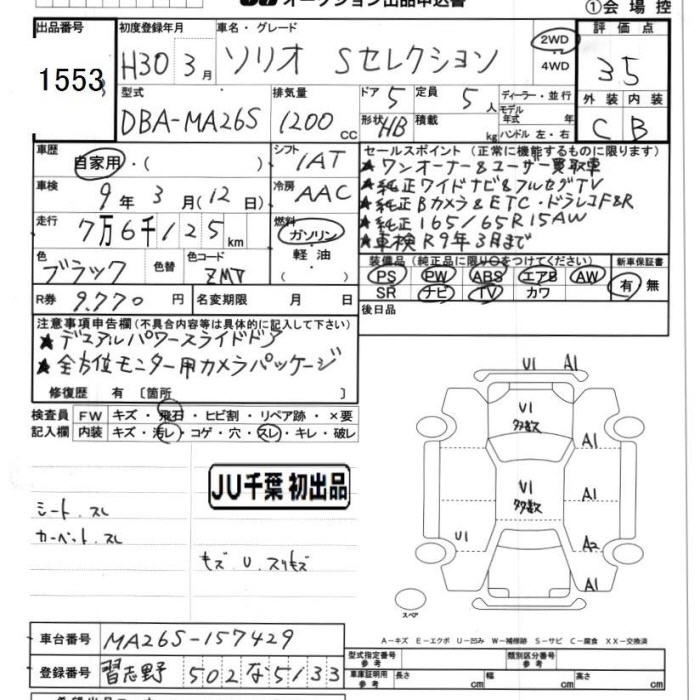 オークション出品申込書
①会場控
出品番号 1553
初度登録年月 H30 3月
車名・グレード ソリオ Sセレクション
2WD
4WD
評価点 3.5
外装 内装
C B
型式 DBA-MA26S
排気量 1200 CC
ドア 5 定員 5人
形状 HB 積載 kg
ディーラー・並行
モデル年式 年式
ハンドル 左・右
車歴 自家用・( )
シフト 1AT
車検 9年3月(12日)
冷房 AAC
走行 7万6千125km
燃料 ガソリン・軽油・( )
色 ブラック 色替
色コード ZMV
R券 9,770円
名変期限 月 日
セールスポイント (正常に機能するものに限ります)
★ワンオーナー&ユーザー買取車
★純正ワイドナビ&フルセグTV
★純正Bカメラ&ETC・ドラレコF&R
★純正165/65R15AW
★車検R9年3月まで
装備品(純正品に限り○をつけてください)
PS PW ABS エアB AW
SR ナビ TV カワ
新車保証書
有 無
後日品
注意事項申告欄(不具合内容等は具体的に記入して下さい)
★デュアルパワースライドドア
★全方位モニター用カメラパッケージ
修復歴 有 〔箇所 〕
検査員記入欄
FW キズ・飛石・ヒビ割・リペア跡・×要
内装 キズ・汚レ・コゲ・穴・スレ・キレ・破レ
JU千葉 初出品
シート.スレ
カーペット.スレ
キズ U スリキズ
U1 A1
U1
多数
A1
U1
多数
A1
U1
A2
A1
スペア
A-キズ E-エクボ U-凹み W-補修跡 S-サビ C-腐食 XX-交換済
車台番号 MA26S-157429
登録番号 習志野 502 な 5133
型式指定番号 参考
類別区分番号 参考
車庫証明用 参考 長さ cm 幅 cm 高さ cm